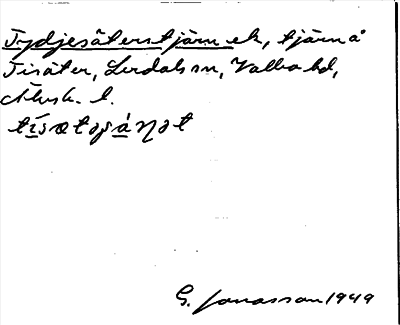 Tydjesäterstjärnek, tjärn å
Tisäter, Lerdals sn, Valbo hd,
Älvsb. l.
tísætəʂáŋət
G. Jonasson 1949